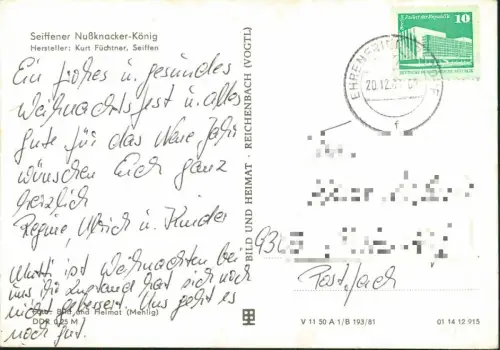 Seiffener Nußknacker-König
Hersteller: Kurt Füchtner, Seiffen
Ein frohes u. gesundes
Weihnachtsfest u. alles
Gute für das Neue Jahr
wünschen Euch ganz
herzlich
Regine, Ulrich u. Kinder
Mutti ist Weihnachten bei
uns. Ihr Zustand hat sich noch
nicht gebessert. Uns geht es
noch gut.
Bild und Heimat (Mehlig)
DDR 0,25 M
BILD UND HEIMAT · REICHENBACH (VOGTL)
Palast der Republik
10
20.12.
936
Postfach
V 11 50 A 1/B 193/81
01 14 12 915